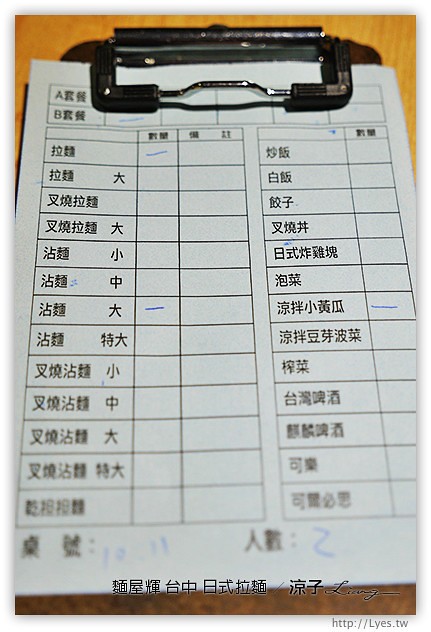 A套餐
B套餐 一
數量 備 註
拉麵 一
拉麵 大
叉燒拉麵
叉燒拉麵 大
沾麵 小
沾麵 中
沾麵 大 一
沾麵 特大
叉燒沾麵 小
叉燒沾麵 中
叉燒沾麵 大
叉燒沾麵 特大
乾担担麵
數量
炒飯
白飯
餃子
叉燒丼
日式炸雞塊
泡菜
涼拌小黃瓜 一
涼拌豆芽波菜
榨菜
台灣啤酒
麒麟啤酒
可樂
可爾必思
桌 號： 10 11
人數： 2
麵屋輝 台中 日式拉麵 / 涼子 Liang
http://Lyes.tw